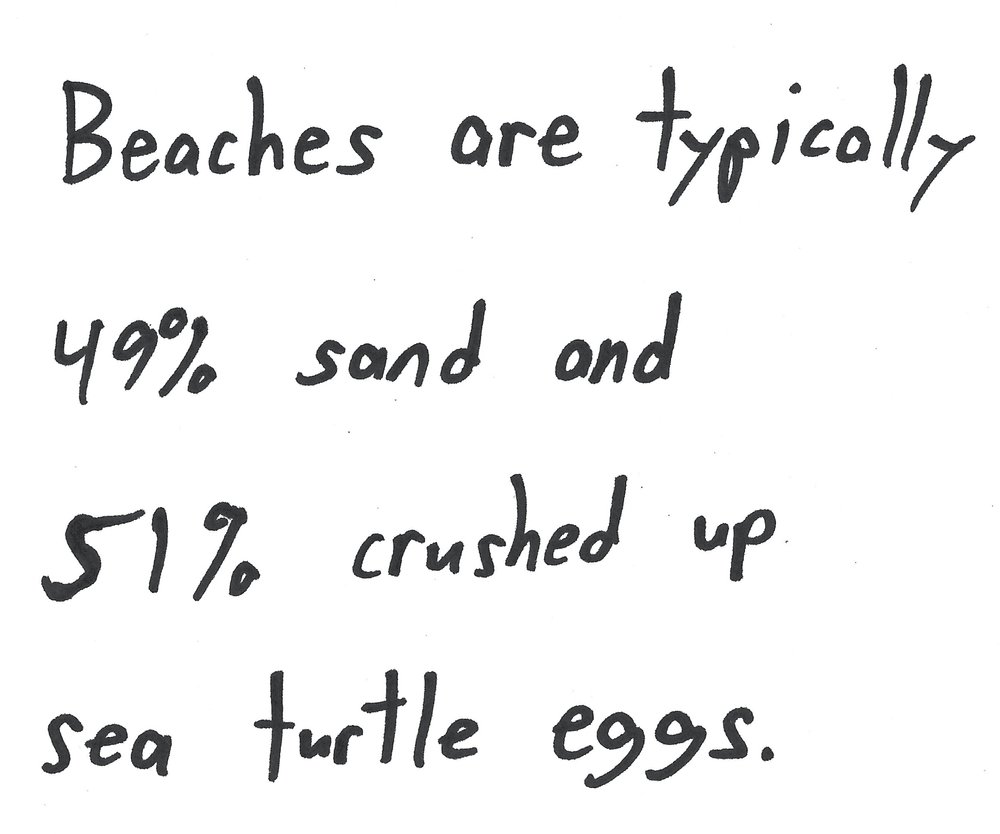 Beaches are typically
49% sand and
51% crushed up
sea turtle eggs.